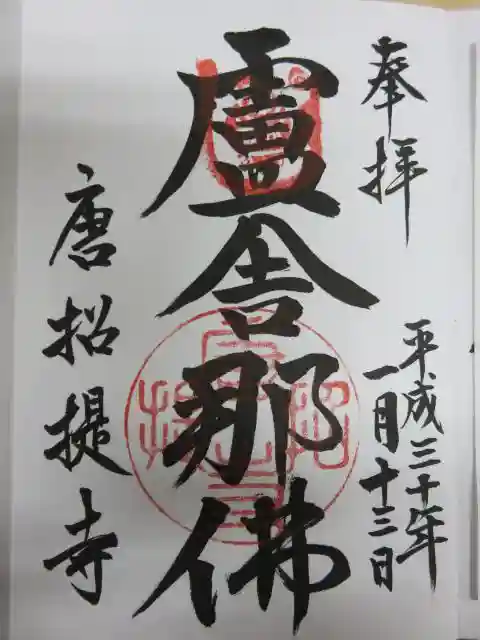 奉拝
平成三十年
一月十三日
盧舎那佛
唐招提寺